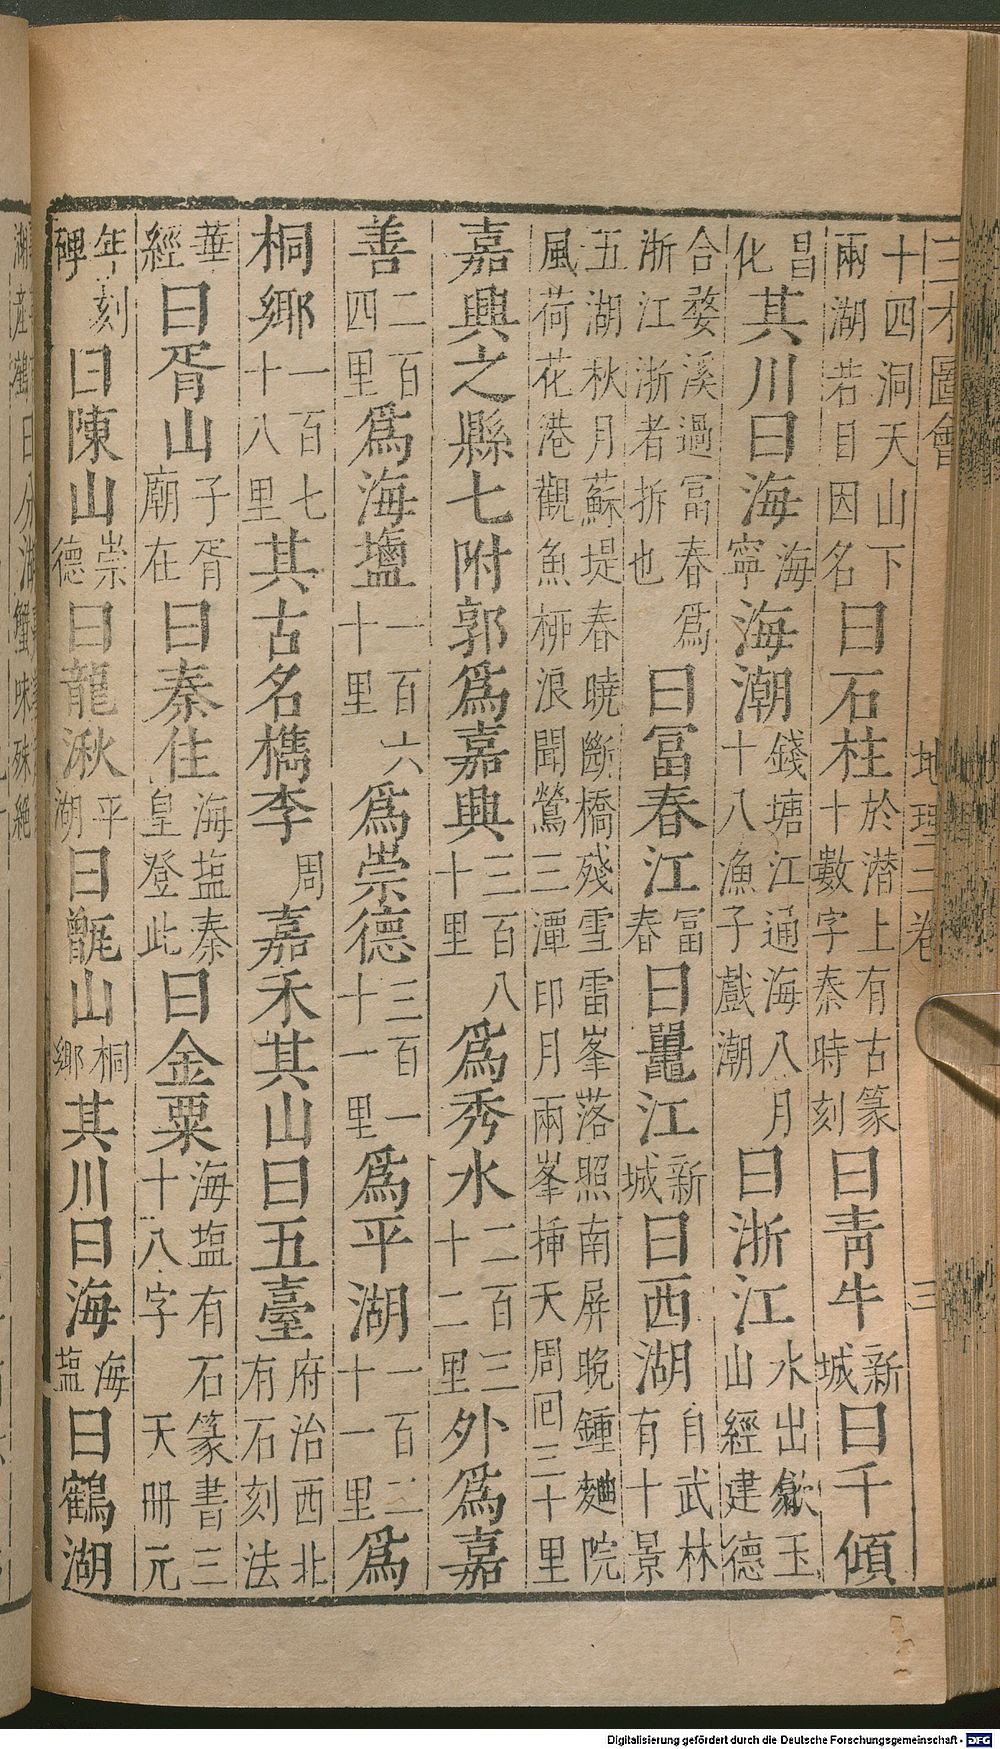 三才圖會 地理三卷 三
十四洞天山下兩湖若目因名曰石柱於潜上有古篆十數字秦時刻曰青牛新城曰千傾
昌化其川曰海海寧海潮錢塘江通海八月十八漁子戲潮曰浙江水出歙玉山經建德
合婺溪過富春爲浙江浙者折也曰富春江富春曰鼉江新城曰西湖自武林有十景
五湖秋月蘇堤春曉斷橋殘雪雷峯落照南屏晚鍾麯院風荷花港觀魚栁浪聞鶯三潭印月兩峯挿天周回三十里
嘉興之縣七附郭爲嘉興三百八十里爲秀水二百三十二里外爲嘉
善二百四里爲海鹽一百六十里爲崇德三百一十一里爲平湖一百二十一里爲
桐鄉一百七十八里其古名檇李周嘉禾其山曰五臺府治西北有石刻法
華經曰胥山子胥廟在曰秦住海塩秦皇登此曰金粟海塩有石篆書三十八字天冊元
年刻碑曰陳山崇德曰龍湫平湖曰甑山桐鄉其川曰海海塩曰鶴湖
Digitalisierung gefördert durch die Deutsche Forschungsgemeinschaft - DFG